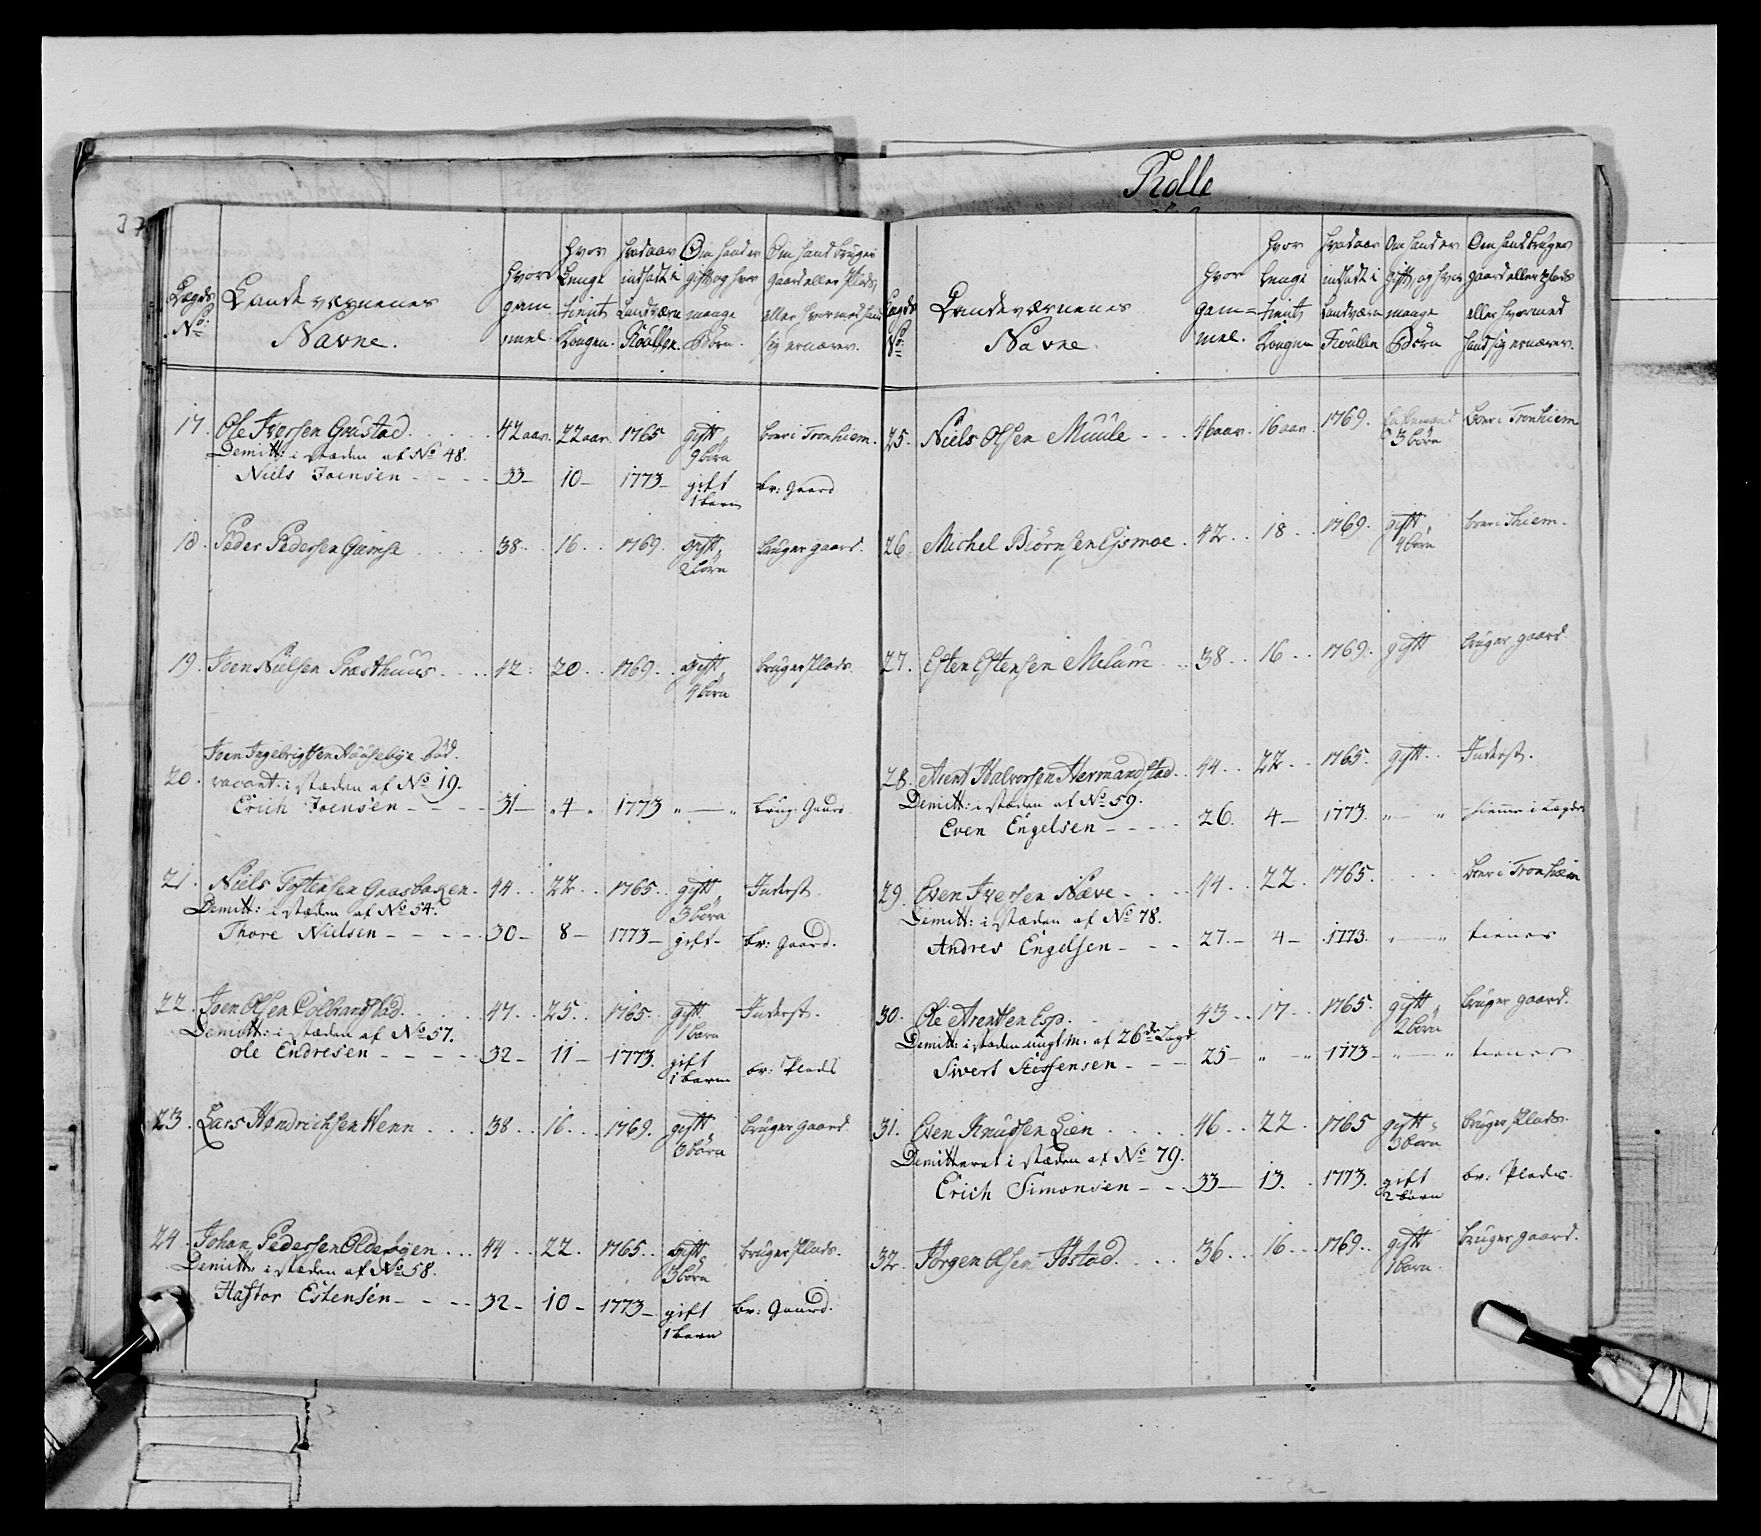 Rolle
37
Lægds No:
Landeværnenes
Navne.
Hvor gam= mel.
Hvor Lenge tient Kongen.
Hvad aar indsadt i Landværn Roullen.
Om hand er gift og hvor mange Børn.
Om hand bruger Gaard eller Plads, eller hvormed hand sig ernærer.
17. Ole Iversen Gustad. 42 aar. 22 aar. 1765 gift 9 børn boer i Tronhiem.
Demitt: i stæden af No 48.
Niels Joensen 33 10 1773 gift 1 barn br: Gaard
18. Peder Pedersen 38. 16. 1769. gift 2 børn bruger gaard.
19. Joen Nielsen Præsthuus. 42. 20. 1769. gift 4 børn bruger Plads.
Joen Ingebrigtsen Huusebye død.
20. vacant: i stæden af No 19.
Erich Joensen 31 „ 4 „ 1773 „ — „ brug: Gaard
21. Niels Tostensen Gaasbaken. 44. 22. 1765. gift 3 børn Inderst.
Demitt: i stæden af No 54.
Thore Nielsen 30 8 1773 gift br: Gaard.
22. Joen Olsen 47. 25. 1765. gift 1 barn Inderst.
Demitt: i stæden af No 57.
Ole Endresen 32 11 1773. gift 1 barn br: Plads
23. Lars Hendrichsen Henn 38. 16. 1769. gift 3 børn bruger gaard.
24. Johan Pedersen Oldeøyen 44. 22. 1765. gift 3 børn bruger Plads.
Demitt: i stæden af No 58.
Hastor Estensen 32 10 1773 gift 1 barn br: Gaard.
Lægds No:
Landeværnenes
Navne.
Hvor gam= mel.
Hvor Lenge tient Kongen
Hvad aar indsadt i Landværn Roullen
Om hand er Gift, og hvor mange Børn
Om hand bruger gaard eller Plads eller hvormed hand sig ernærer.
25. Niels Olsen Muule 46 aar. 16 aar. 1769. Enkemand 3 børn boer i Tronhiem
26. Michel Biørnsen Eismoe. 42. 18. 1769. gift 4 børn boer i Thiem.
27. Esten Estensen Melum 38. 16. 1769. gift bruger gaard.
28. Arent Halvorsen Hermandstad. 44. 22. 1765. gift Inderst.
Demitt: i stæden af No 59.
Even Engelsen 26. 4 1773. „ — „ hiemme i Lægdet
29. Even Iversen Næve 44. 22. 1765. boer i Tronhiem
Demitt: i stæden af No 78.
Andres Engelsen 27. 4 1773. „ — „ tiener
30. Ole Arentsen Esp. 43. 17. 1765. gift 2 børn bruger gaard.
Demitt: i stæden ungt m. af 26de Lægd
Sivert 25 „ — „ 1773 „ — „ tiener
31. Even Knudsen Lien 46. 22. 1765 gift 3 børn bruger Plads.
Demitteret i stæden af No 79.
Erich Simonsen 33 13. 1773. gift 2 børn br: Plads.
32. Jørgen Olsen 36. 16. 1769. gift 1 barn. bruger gaard.